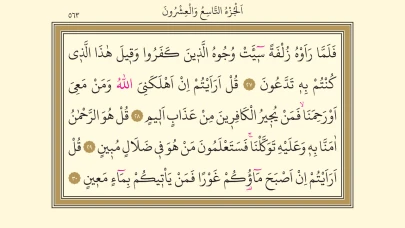 اَلْجُزْءُ التَّاسِعُ وَالْعِشْرُونَ
٥٦٣
فَلَمَّا رَاَوْهُ زُلْفَةً سٓيـَٔتْ وُجُوهُ الَّذ۪ينَ كَفَرُوا وَق۪يلَ هٰذَا الَّذ۪ي
كُنْتُمْ بِه۪ تَدَّعُونَ ٢٧ قُلْ اَرَاَيْتُمْ اِنْ اَهْلَكَنِيَ اللّٰهُ وَمَنْ مَعِيَ
اَوْ رَحِمَنَاۙ فَمَنْ يُج۪يرُ الْكَافِر۪ينَ مِنْ عَذَابٍ اَل۪يمٍ ٢٨ قُلْ هُوَ الرَّحْمٰنُ
اٰمَنَّا بِه۪ وَعَلَيْهِ تَوَكَّلْنَاۚ فَسَتَعْلَمُونَ مَنْ هُوَ ف۪ي ضَلَالٍ مُب۪ينٍ ٢٩ قُلْ
اَرَاَيْتُمْ اِنْ اَصْبَحَ مَٓاؤُ۬كُمْ غَوْرًا فَمَنْ يَأْت۪يكُمْ بِمَٓاءٍ مَع۪ينٍ ٣٠